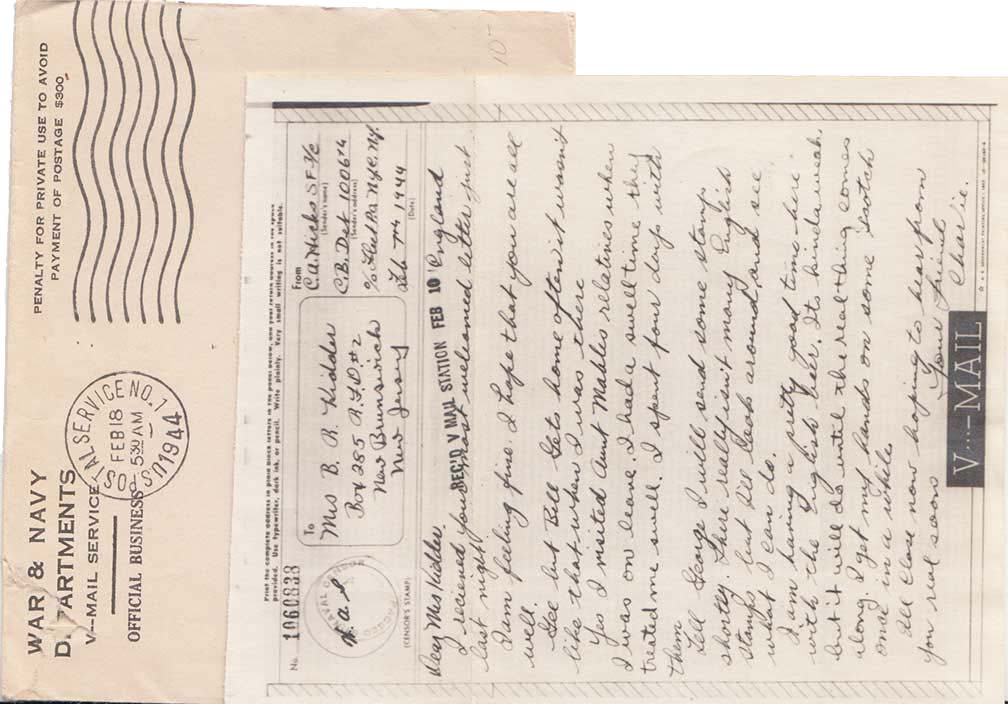 WAR & NAVY
DEPARTMENTS
V---MAIL SERVICE
OFFICIAL BUSINESS
PENALTY FOR PRIVATE USE TO AVOID
PAYMENT OF POSTAGE $300
POSTAL SERVICE NO. 1
FEB 18
5 30 AM
1944
10-
Print the complete address in plain block letters in the panel below, and your return address in the space
provided. Use typewriter, dark ink, or pencil. Write plainly. Very small writing is not suitable.
No. 1060838
(CENSOR'S STAMP)
To
Mrs B. R. Kidder
Box 285 R.F.D #2
New Brunswich
New Jersey
From
C.A. Hicks SF 3/c
(Sender's name)
C.B. Det 1006 th
(Sender's address)
c/o Fleet Po NYC. NY.
Feb 7th 1944
(Date)
REC'D V MAIL STATION FEB 10
England
Dear Mrs Kidder
I recieved your most welcomed letter just
last night.
I am feeling fine. I hope that you are all
well.
Gee but Bill gets home often it wasn't
like that when I was there
Yes I visited Aunt Mables relatives when
I was on leave. I had a swell time they
treated me swell. I spent four days with
them
Tell George I will send some stamps
shortly. There really isn't many English
stamps but I'll look around and see
what I can do.
I am having a pretty good time here
with the English beer. Its kinda weak
but it will do until the real thing comes
along. I get my hands on some scotch
once in a while.
I'll close now hoping to hear from
you real soon
Your friend
Charlie.
V---MAIL